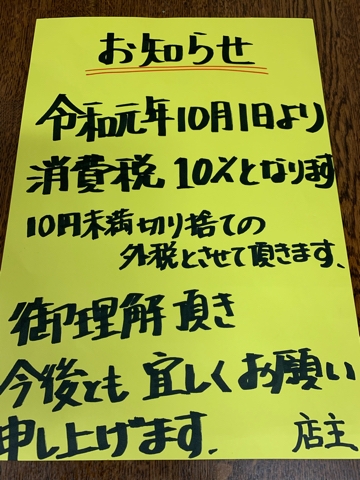 お知らせ
令和元年10月1日より
消費税10%となります
10円未満切り捨ての
外税とさせて頂きます、
御理解頂き
今後とも宜しくお願い
申し上げます、
店主